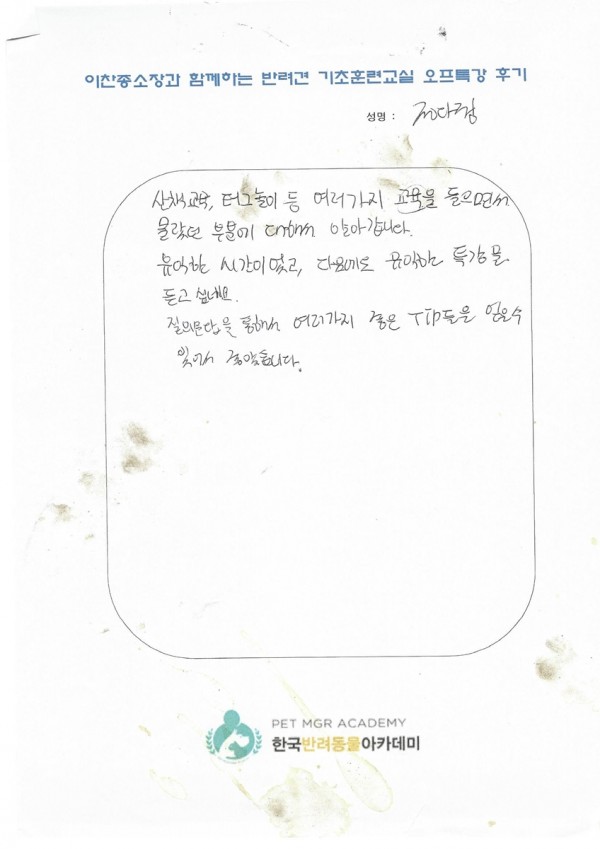 이찬종소장과 함께하는 반려견 기초훈련교실 오프특강 후기
성명 :
산책교육, 터그놀이 등 여러가지 교육을 들으면서
몰랐던 부분에 대해서 알아갑니다.
유익한 시간이였고, 다음에도 유익한 특강을
듣고 싶네요.
질의문답을 통해서 여러가지 좋은 TIP들을 얻을수
있어서 좋았습니다.
PET MGR ACADEMY
한국반려동물아카데미